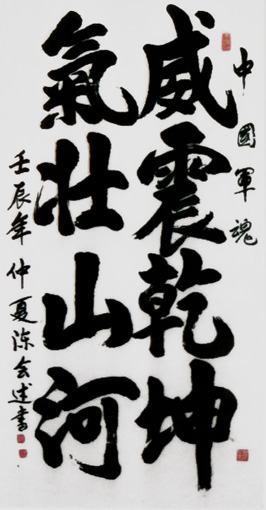 中國軍魂
威震乾坤
氣壯山河
壬辰年仲夏陈会述書